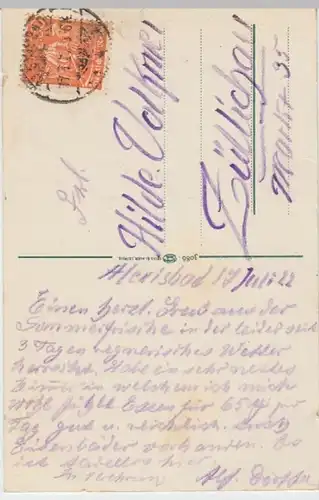 Frl.
Hilde Volkmer
Züllichau
Markt 35
3086
Alexisbad 17 Juli 22
Einen herzl. Gruß aus der
Sommerfrische in der leider seit
3 Tagen regnerisches Wetter
herrscht. Habe ein sehr nettes
Zimmer in welchem ich mich
wohl fühle Essen für 65 M pro
Tag gut u. reichlich. Auch
vorhanden. Es
ist tadellos hier
Alf.